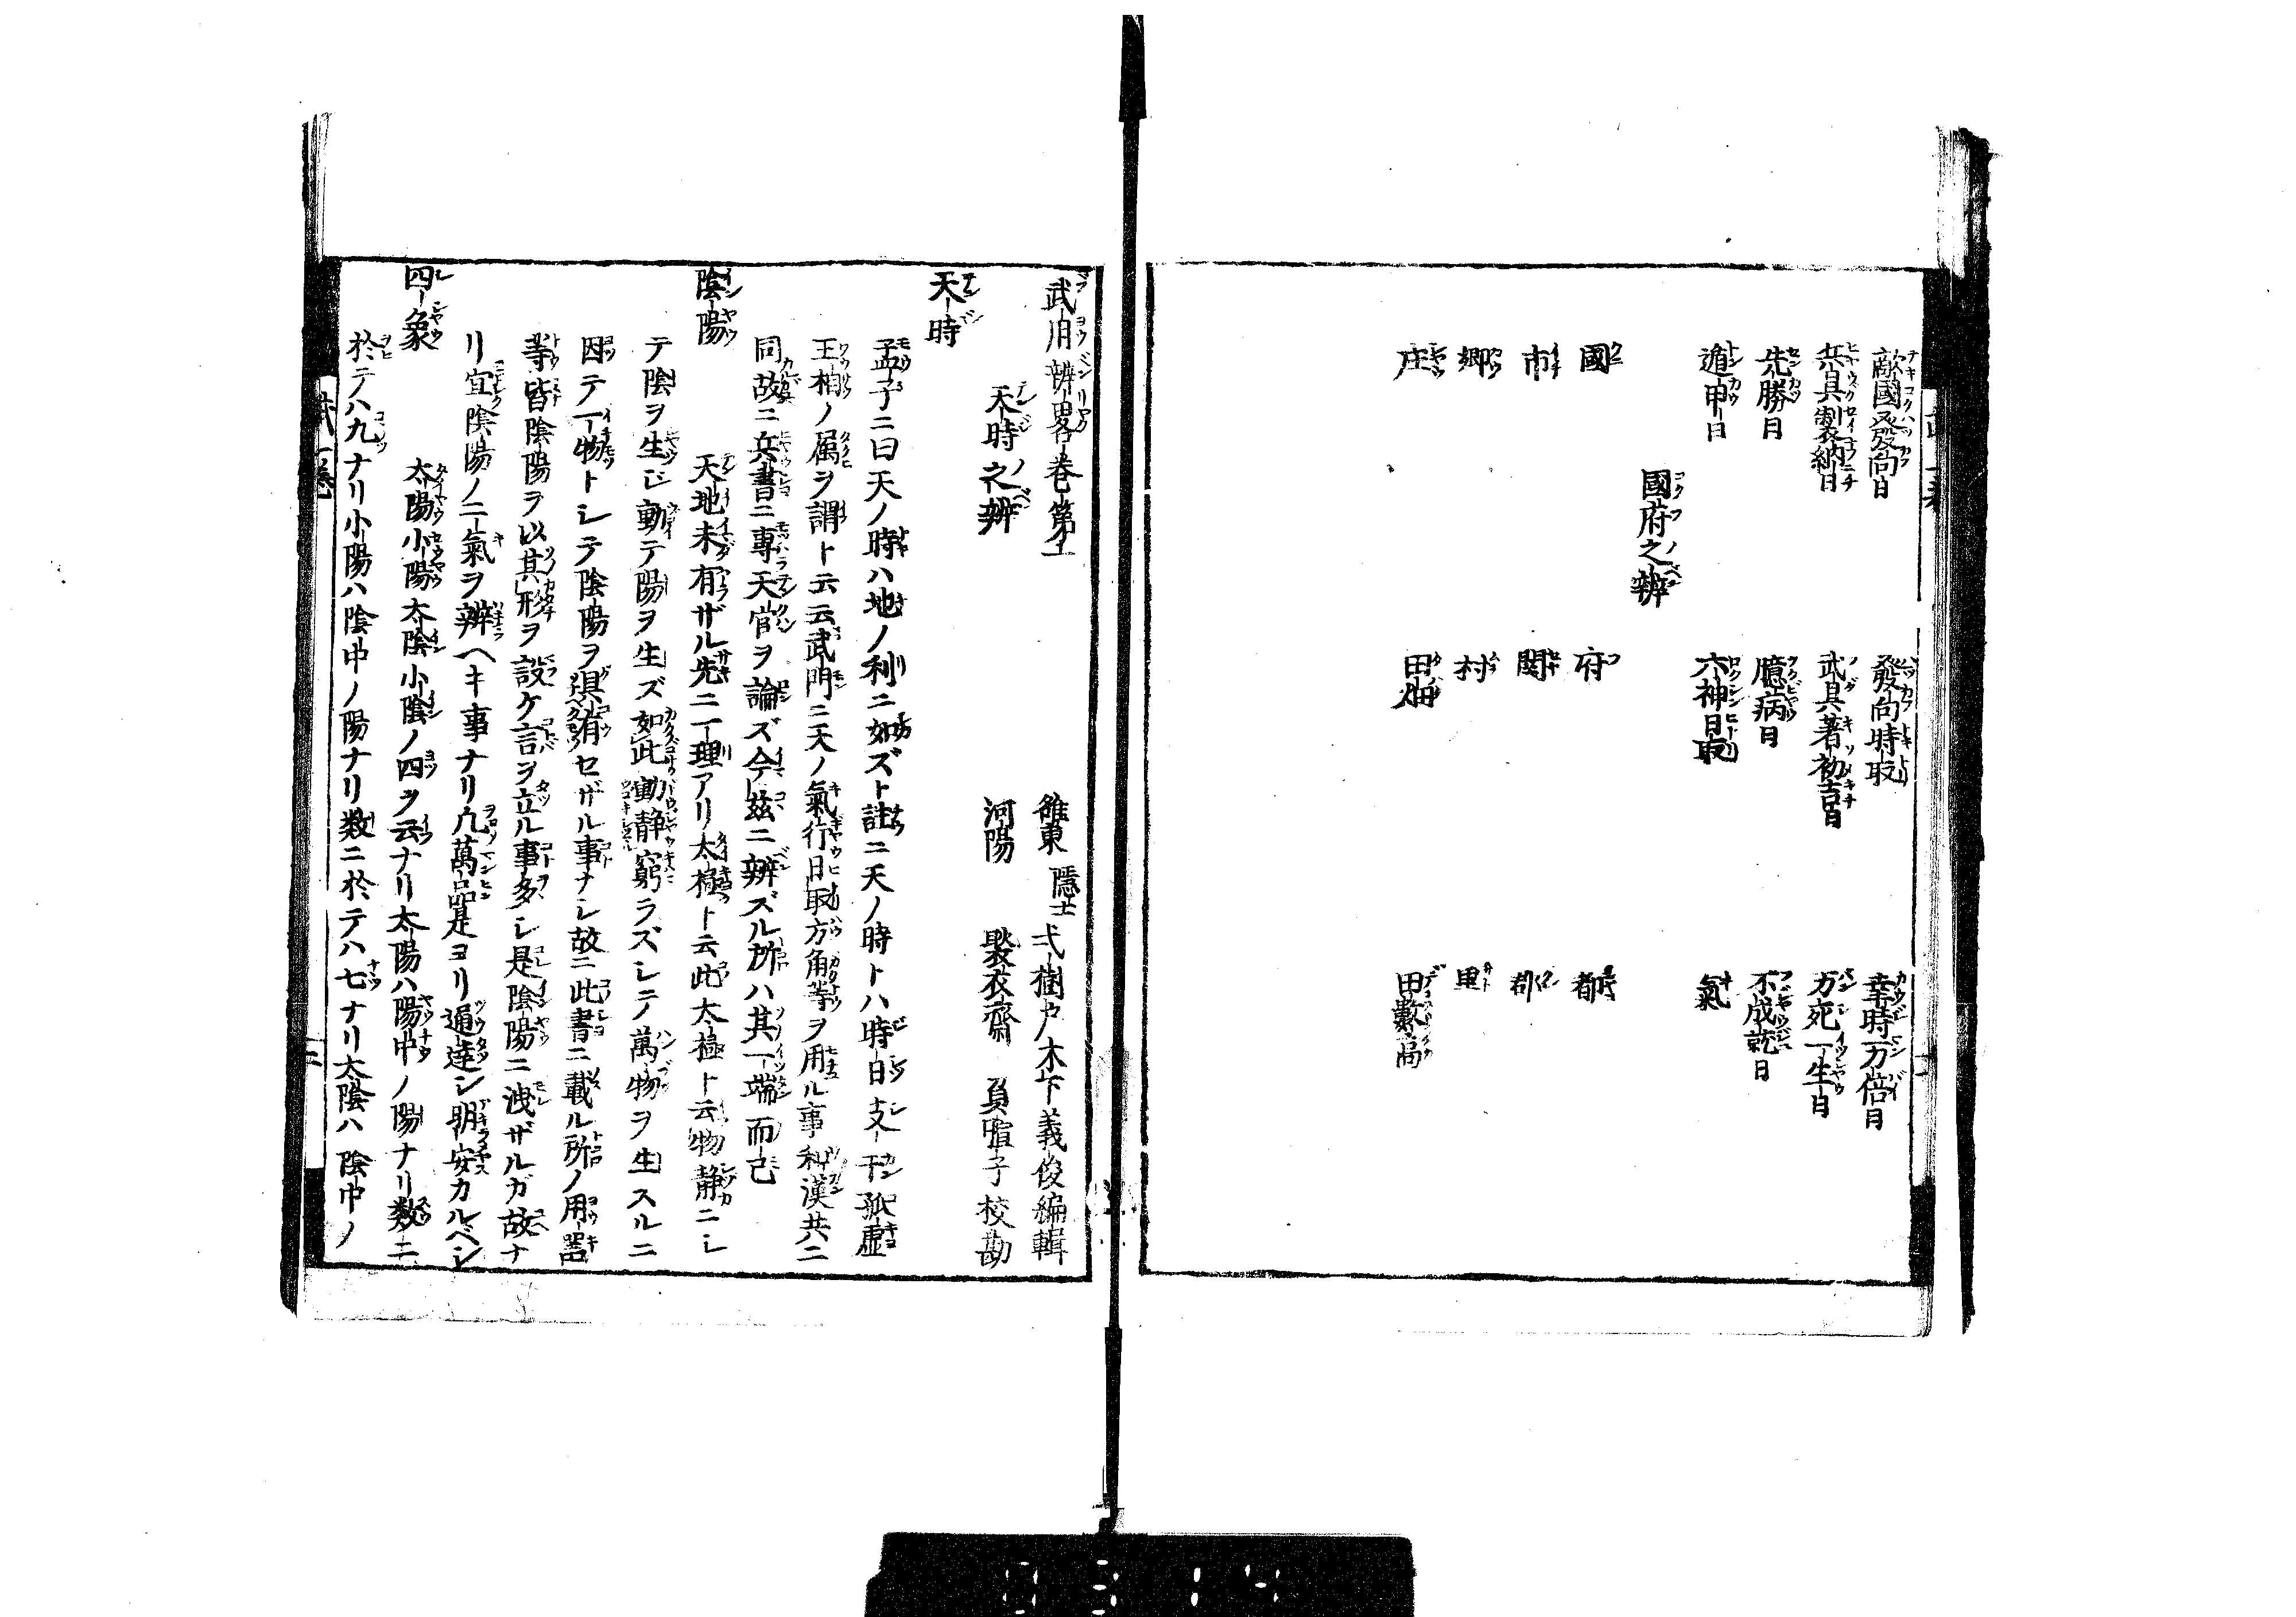 敵國発向日　發向時取　幸時万倍日
兵具製納日　武具著初吉日　万死一生日
先勝日　臆病日　不成就日
遁甲日　六神日取　氣
國府之辨
國　府　都
市　関　郡
郷　村　里
庄　田畑　田數高
武用辨畧巻第一
雒東隱士　弌樹軒木下義俊編輯
天時之辨　河陽　褧衣齋　負暄子校勘
天時
孟子ニ曰天ノ時ハ地ノ利ニ如ズト註ニ天ノ時トハ時日支干孤虚
王相ノ属ヲ謂ト云云武門ニ天ノ氣行日取方角等ヲ用ル事和漢共ニ
同故ニ兵書ニ專天官ヲ論ズ今茲ニ辨ズル所ハ其一端而已
陰陽　天地未有ザル先ニ一理アリ太極ト云此太極ト云物靜ニシ
テ陰ヲ生ジ動テ陽ヲ生ズ如此動静窮ラズシテ萬物ヲ生スルニ
因テ一物トシテ陰陽ヲ俱有セザル事ナシ故ニ此書ニ載ル所ノ用器
等皆陰陽ヲ以其形ヲ設ケ言ヲ立ル事多シ是陰陽ニ洩ザルガ故ナ
リ宜陰陽ノ二氣ヲ辨ヘキ事ナリ凡萬品是ヨリ通達シ明安カルベシ
四象　太陽小陽太陰小陰ノ四ツヲ云ナリ太陽ハ陽中ノ陽ナリ数ニ
於テハ九ナリ小陽ハ陰中ノ陽ナリ数ニ於テハ七ナリ太陰ハ陰中ノ